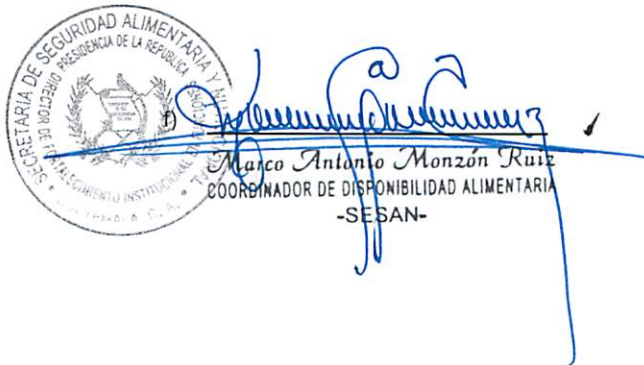 SECRETARIA DE SEGURIDAD ALIMENTARIA Y
PRESIDENCIA DE LA REPUBLICA
DIRECTOR DE
INSTITUCIONAL
GUATEMALA, C. A.
f)
Marco Antonio Monzón Ruiz
COORDINADOR DE DISPONIBILIDAD ALIMENTARIA
-SESAN-